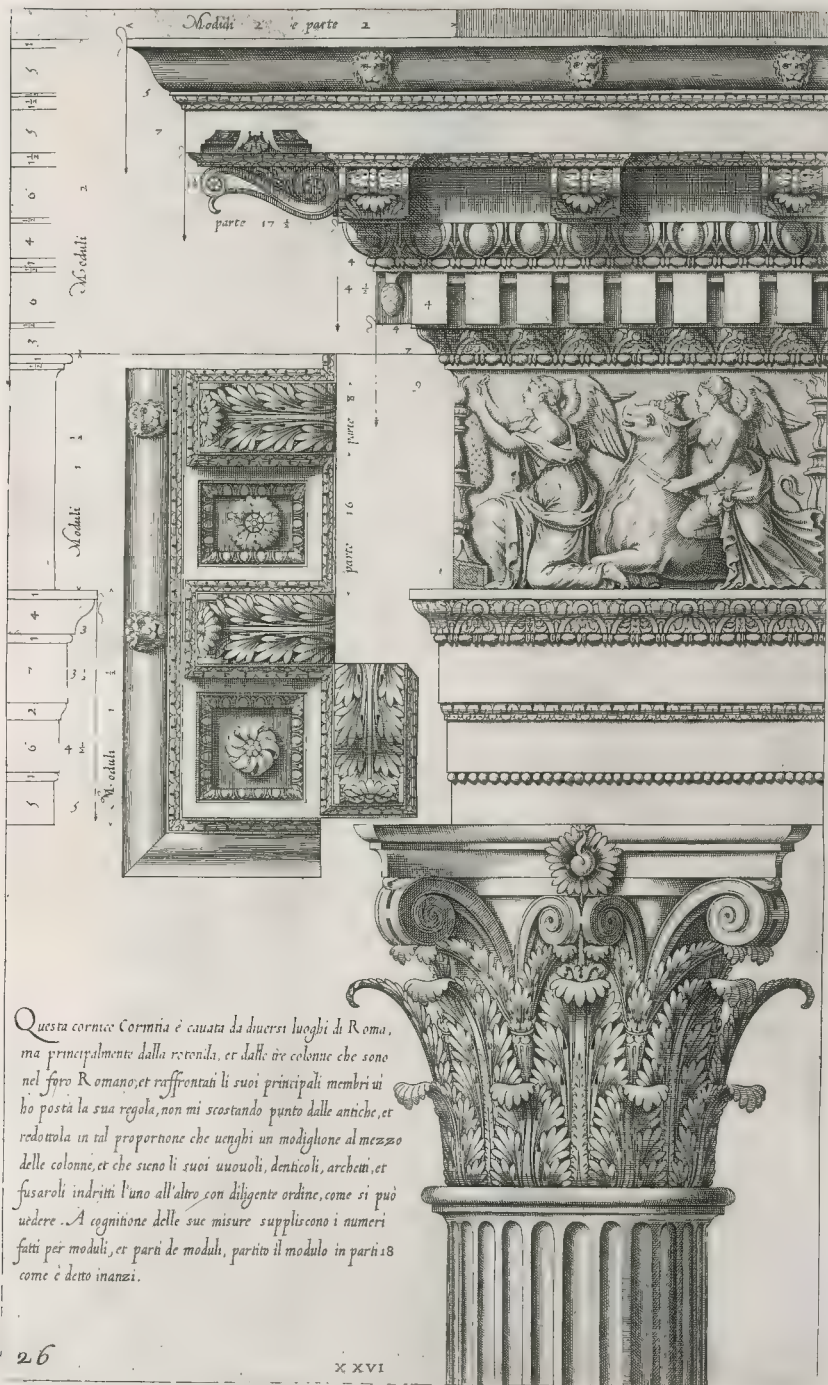 Moduli 2 e parte 2
1
5
1 1/2
5
1 1/2
6
4
6
3
Moduli 2
5
7
parte 17 1/2
4
4 1/2
4
4
7
9
parte 8
parte 16
Moduli 1 1/2
1
4
1
7
2
6
1
5
3
3
4 1/2
5
Moduli 1 1/2
Questa cornice Corintia è cauata da diuersi luoghi di Roma,
ma principalmente dalla rotonda, et dalle tre colonne che sono
nel foro Romano; et raffrontati li suoi principali membri ui
ho posta la sua regola, non mi scostando punto dalle antiche, et
redottola in tal proportione che uenghi un modiglione al mezzo
delle colonne, et che sieno li suoi uuouoli, denticoli, archetti, et
fusaroli indritti l'uno all'altro con diligente ordine, come si può
uedere. A cognitione delle sue misure suppliscono i numeri
fatti per moduli, et parti de moduli, partito il modulo in parti 18
come è detto inanzi.
26
XXVI